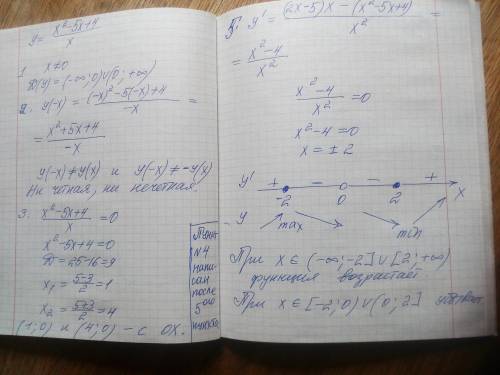 y = x²-5x+4 / x
1. x≠0
D(y) = (-∞; 0)∪(0; +∞)
2. y(-x) = (-x)²-5(-x)+4 / -x =
= x²+5x+4 / -x
y(-x) ≠ y(x) и y(-x) ≠ -y(x)
Ни чётная, ни нечётная.
3. x²-5x+4 / x = 0
x²-5x+4 = 0
D = 25-16 = 9
x₁ = 5-3 / 2 = 1
x₂ = 5+3 / 2 = 4
(1; 0) и (4; 0) – с OX.
Пункт
N4
напи-
сан
после
5ого
пункта
5. y' = (2x-5)x - (x²-5x+4) / x² =
= x²-4 / x²
x²-4 / x² = 0
x²-4 = 0
x = ±2
y' + - - +
-2 0 2 x
y max min
При x ∈ (-∞; -2] ∪ [2; +∞)
функция возрастает
При x ∈ [-2; 0) ∪ (0; 2]